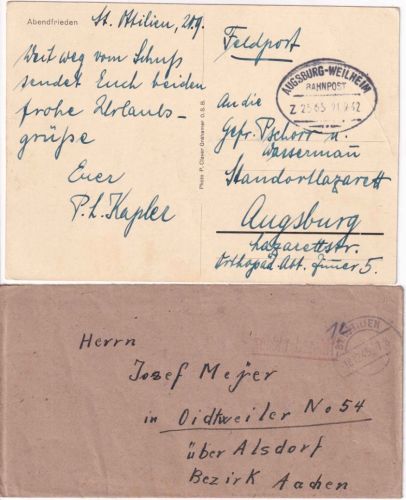 Abendfrieden
St. Ottilien, 20.9.
Weit weg vom Schuß
sendet Euch beiden
frohe Urlaubs-
grüße
Euer
P. L. Kapler
Photo P. Claver Grahamer O.S.B.
Feldpost
AUGSBURG-WEILHEIM
BAHNPOST
Z 2565 21.9.42
An die
Gefr. Pschorr u.
Wassermann
Standortlazarett
Augsburg
Lazarettstr.
Orthopäd. Abt. Zimmer 5.
12
OTTILIEN
Herrn
Josef Meyer
in Oidtweiler No 54
über Alsdorf
Bezirk Aachen